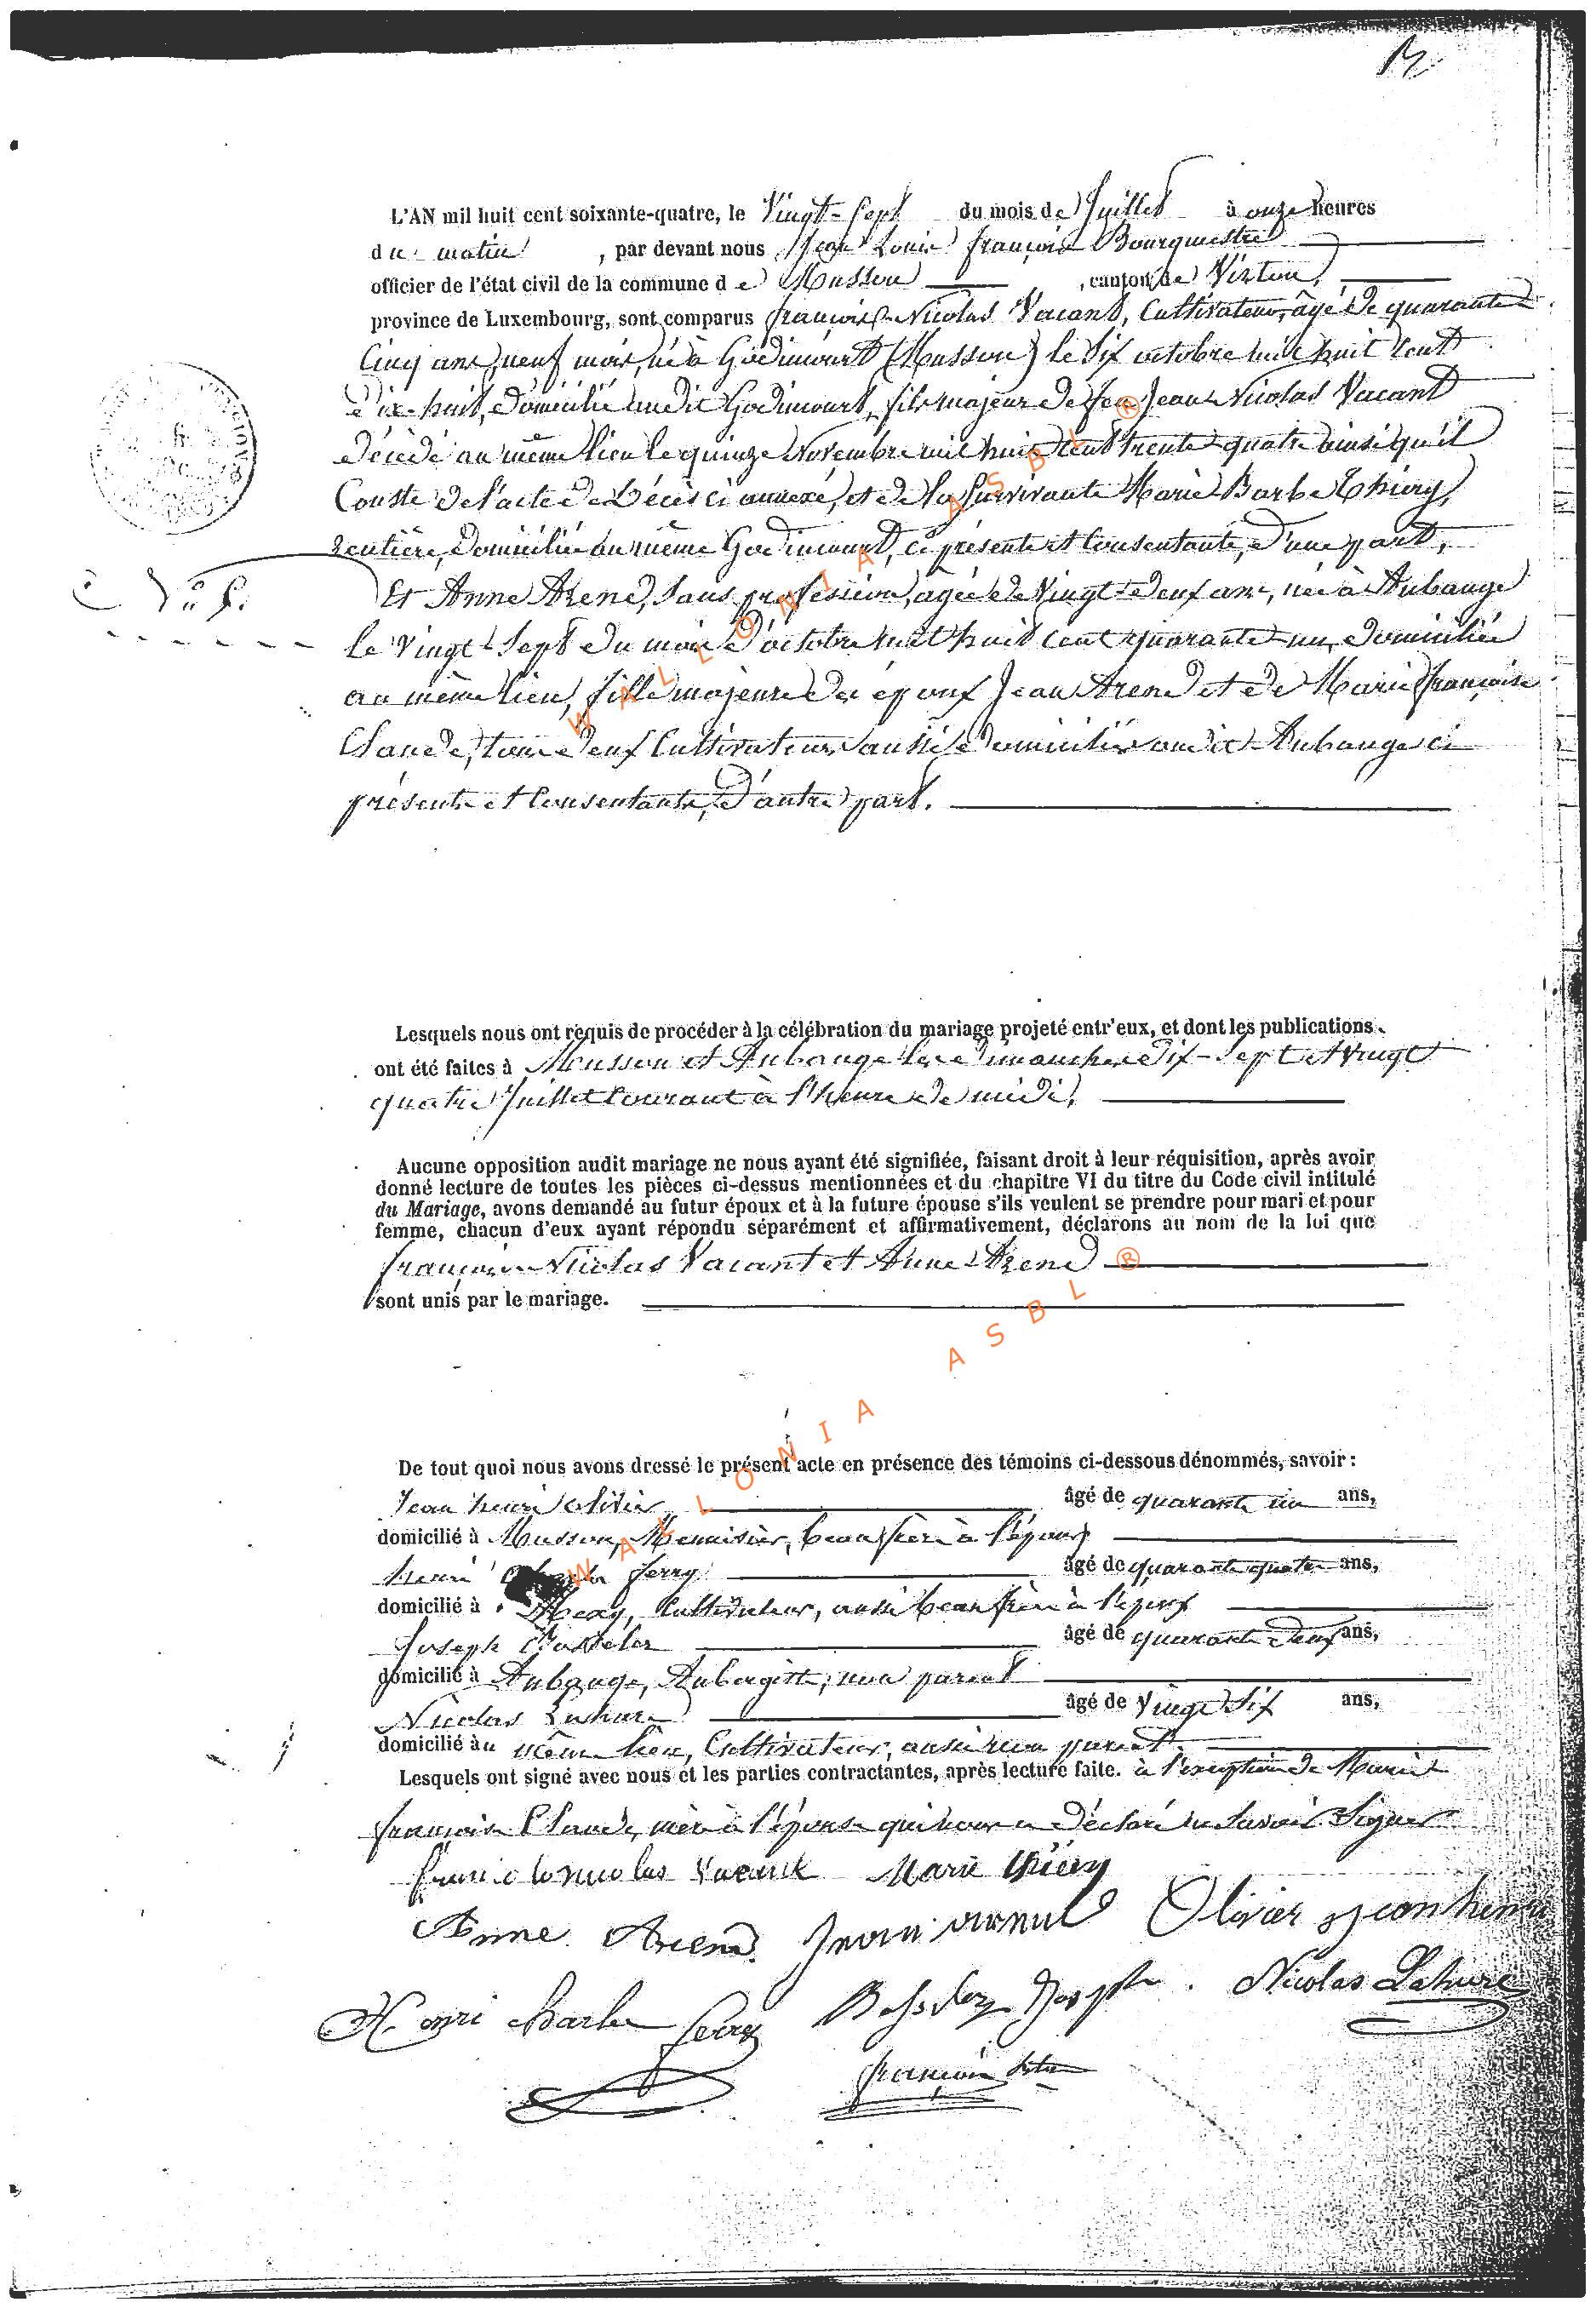 L'AN mil huit cent soixante-quatre, le Vingt-Sept du mois de Juillet à onze heures
du matin, par devant nous Jean Louis François Bourguestre
officier de l'état civil de la commune de Musson, canton de Virton,
province de Luxembourg, sont comparus François Nicolas Vacant, Cultivateur, âgé de quarante
Cinq ans, neuf mois, né à Godincourt (Musson) le Six octobre mil huit Cent
dix-huit, domicilié audit Godincourt, fils majeur de feu Jean Nicolas Vacant
décédé au même lieu le quinze Novembre mil huit cent trente quatre ainsi qu'il
Conste de l'acte de Décès ci annexé, et de la Survivante Marie Barbe Thiéry,
rentière, domiciliée au même Godincourt, ci présente et Consentante, d'une part,
Et Anne Arend, Sans profession, âgée de Vingt-deux ans, née à Aubange
le Vingt-Sept du mois d'octobre mil huit cent quarante-un, domiciliée
au même lieu, fille majeure des époux Jean Arend et de Marie Françoise
Claude, tous deux Cultivateurs aussi domiciliés audit Aubange ci
présents et Consentants, d'autre part.
Lesquels nous ont requis de procéder à la célébration du mariage projeté entr'eux, et dont les publications
ont été faites à Musson et Aubange les dimanches dix-Sept et Vingt
quatre Juillet Courant à l'heure de midi,
Aucune opposition audit mariage ne nous ayant été signifiée, faisant droit à leur réquisition, après avoir
donné lecture de toutes les pièces ci-dessus mentionnées et du chapitre VI du titre du Code civil intitulé
du Mariage, avons demandé au futur époux et à la future épouse s'ils veulent se prendre pour mari et pour
femme, chacun d'eux ayant répondu séparément et affirmativement, déclarons au nom de la loi que
François Nicolas Vacant et Anne Arend
sont unis par le mariage.
De tout quoi nous avons dressé le présent acte en présence des témoins ci-dessous dénommés, savoir:
Jean henri Olivier âgé de quarante un ans,
domicilié à Musson, Menuisier, beau frère à l'époux
henri ferry âgé de quarante quatre ans,
domicilié à Cultivateur, aussi beau frère à l'époux
Joseph âgé de quarante deux ans,
domicilié à Aubange, Aubergiste, non parent
Nicolas Lahure âgé de Vingt Six ans,
domicilié au même lieu, Cultivateur, aussi non parent
Lesquels ont signé avec nous et les parties contractantes, après lecture faite. à l'exception de Marie
françoise Claude, mère à l'épouse qui nous a déclaré ne Savoir Signer
françois nicolas Vacant Marie thiéry
Anne Arend Jean arend Olivier Jean henri
Henri Barbe ferry Joseph Nicolas Lahure
WALLONIA ASBL ®
WALLONIA ASBL ®